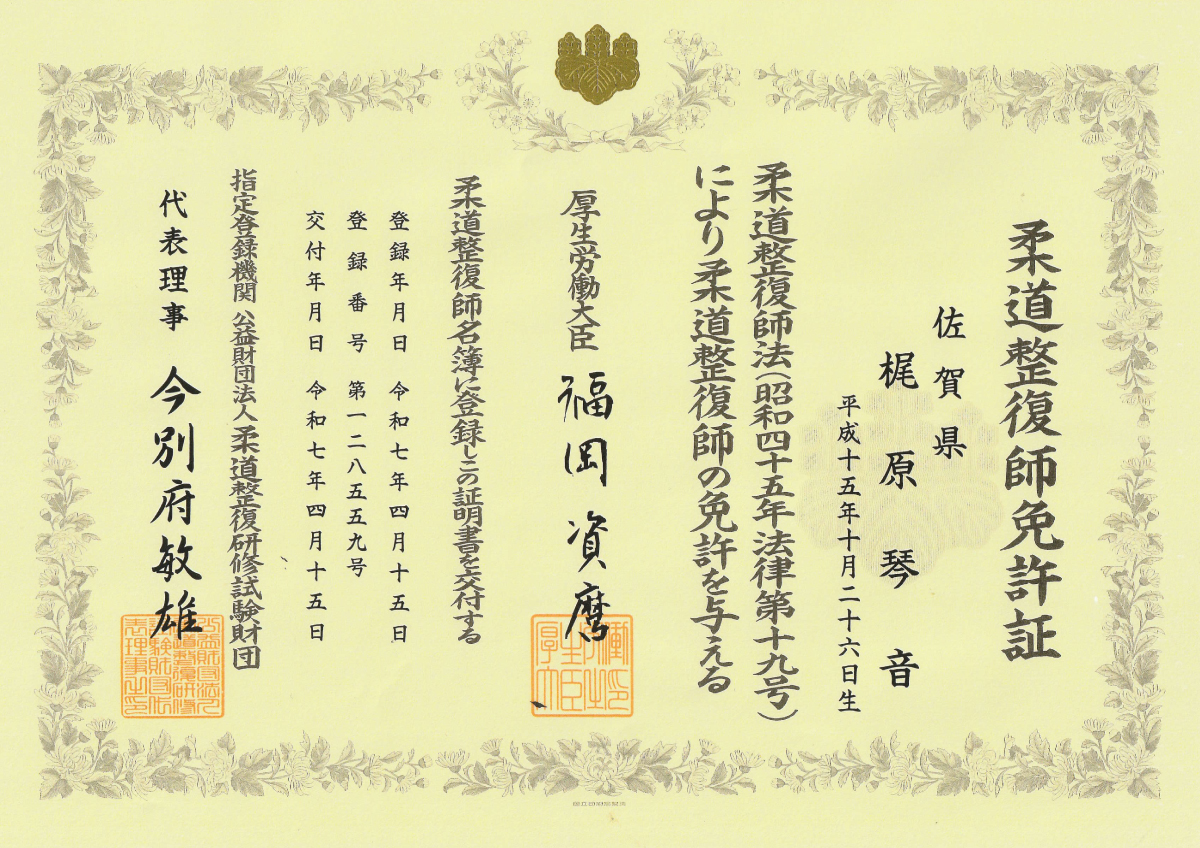 柔道整復師免許証
佐賀県
梶原琴音
平成十五年十月二十六日生
柔道整復師法(昭和四十五年法律第十九号)
により柔道整復師の免許を与える
厚生労働大臣 福岡資麿
柔道整復師名簿に登録しこの証明書を交付する
登録年月日 令和七年四月十五日
登録番号 第一二八五五九号
交付年月日 令和七年四月十五日
指定登録機関 公益財団法人柔道整復研修試験財団
代表理事 今別府敏雄